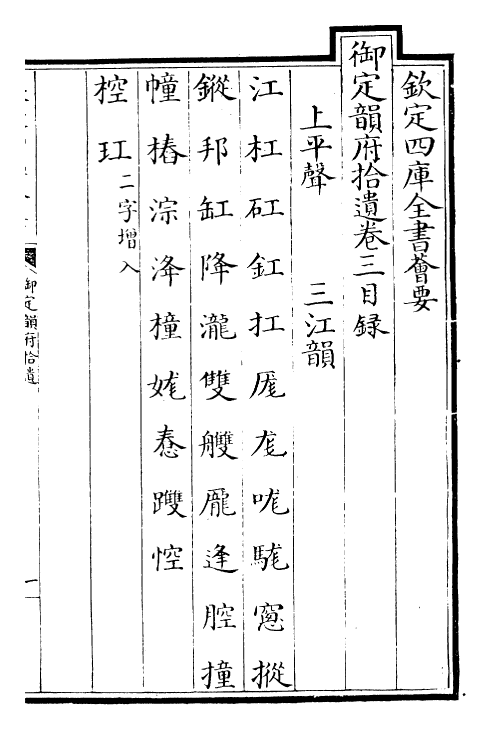 欽定四庫全書薈要
御定韻府拾遺卷三目録
上平聲　三江韻
江杠矼釭扛厖尨哤駹窻摐
鏦邦缸降瀧雙艭龎逢腔撞
幢樁淙洚橦娏惷躞悾
椌玒二字增入
御定韻府拾遺
一